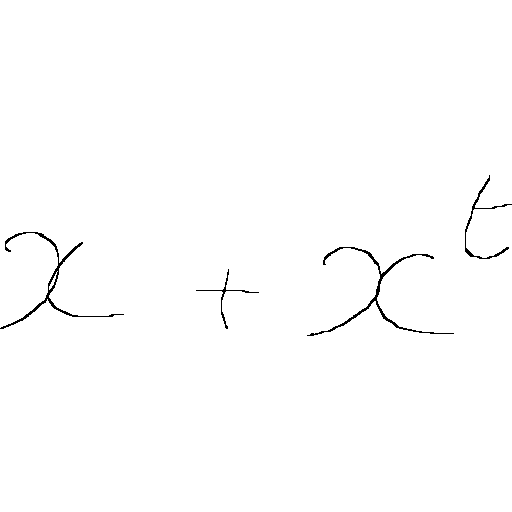 x + x^t